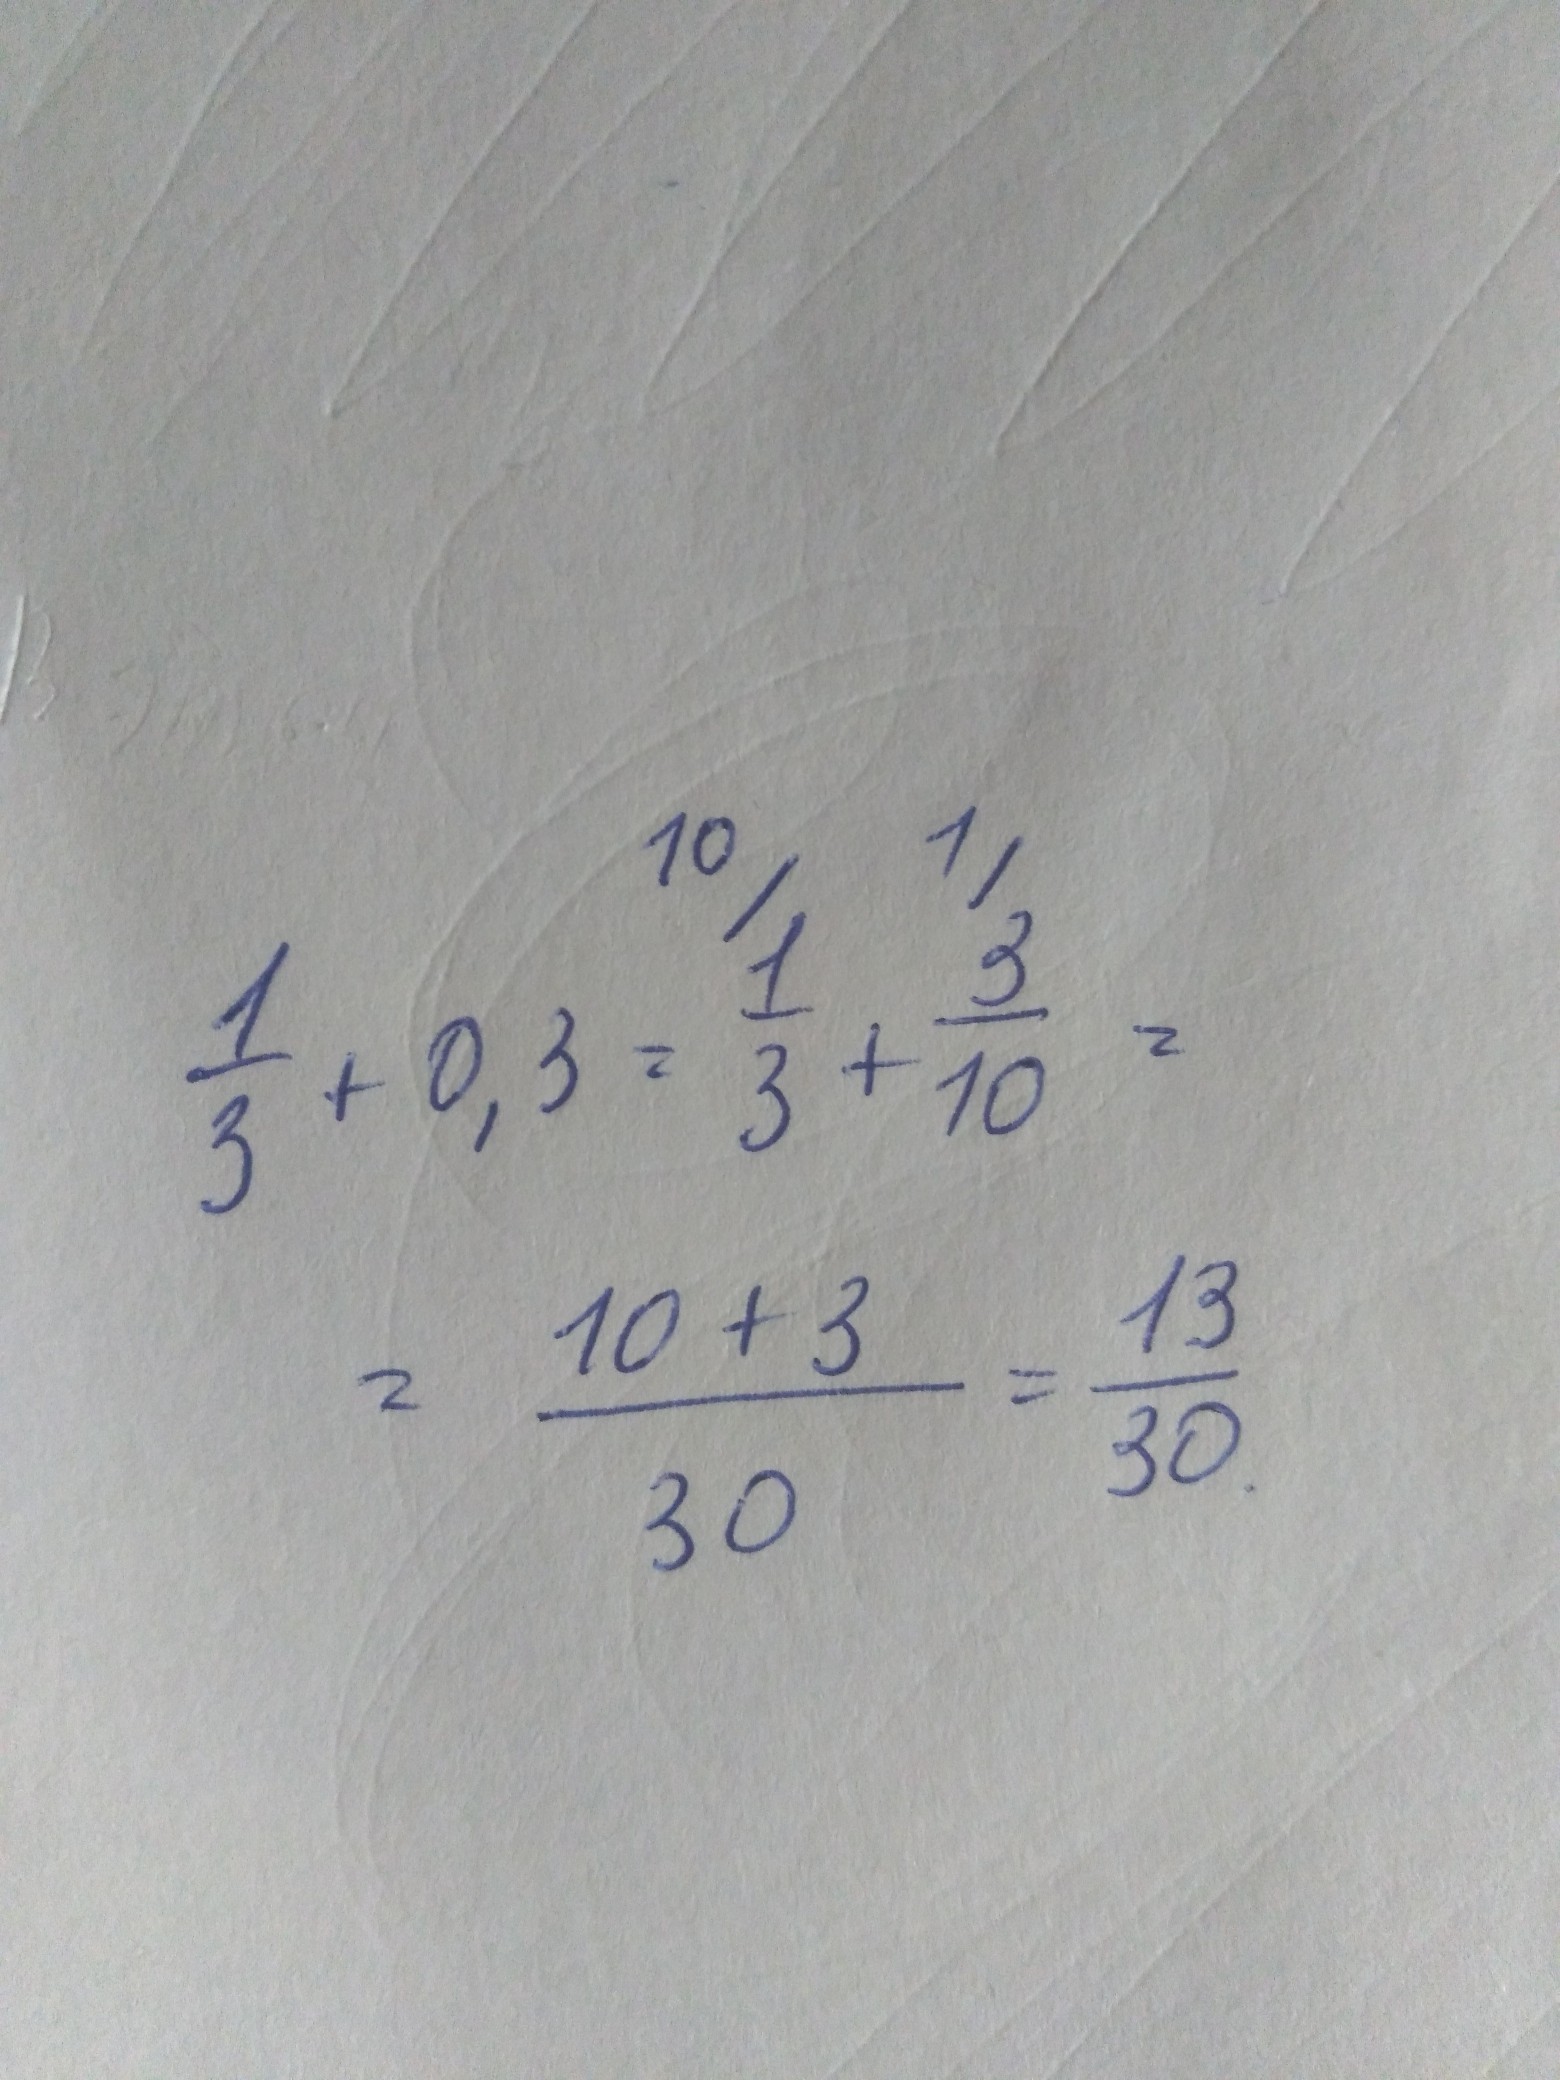 10/ 1/
1/3 + 0,3 = 1/3 + 3/10 =
= (10 + 3)/30 = 13/30.